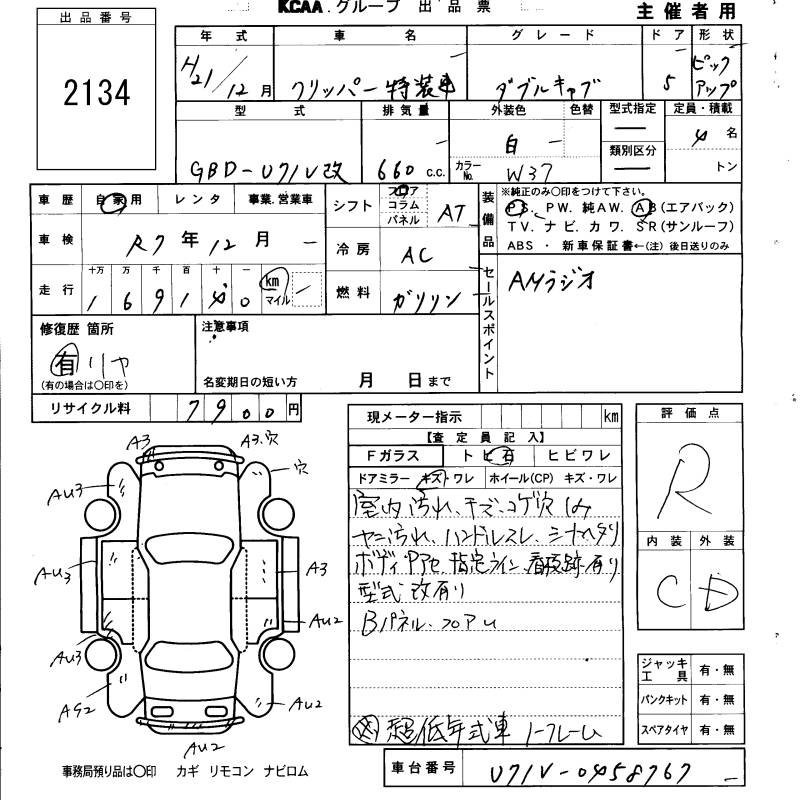 KCAA.グループ 出品票
主催者用
出品番号
2134
年式 車名 グレード ドア 形状
H21/12月 クリッパー特装車 ダブルキャブ 5 ピックアップ
型式 排気量 外装色 色替 型式指定 定員・積載
GBD-U71V改 660 c.c. 白 カラーNo. W37 類別区分 4名 トン
車歴 自家用 レンタ 事業.営業車
シフト フロア コラム パネル AT
装備品
※純正のみ〇印をつけて下さい。
PS. PW. 純AW. AB(エアバック)
TV. ナビ. カワ. SR(サンルーフ)
ABS ・ 新車保証書←(注) 後日送りのみ
車検 R7年12月
冷房 AC
走行 十万 万 千 百 十 一 km マイル
169140
燃料 ガソリン
セールスポイント
AMラジオ
修復歴 箇所
有 リヤ
(有の場合は〇印を)
注意事項
名変期日の短い方 月 日まで
リサイクル料 7900円
現メーター指示 km
評価点
R
【査定員記入】
Fガラス トビ石 ヒビワレ
ドアミラー キズ・ワレ ホイール(CP) キズ・ワレ
室内汚れ、キズ、コゲ穴
ヤニ汚れ、ハンドルスレ、シートヘタリ
型式改有り
Bパネル、フロアU
超低年式車
内装 外装
C D
A3 A3.穴
穴
AU3
AU3 A3
AU2
AU3
AG2 AU2
AU2
ジャッキ工具 有・無
パンクキット 有・無
スペアタイヤ 有・無
事務局預り品は〇印 カギ リモコン ナビロム
車台番号 U71V-0458767